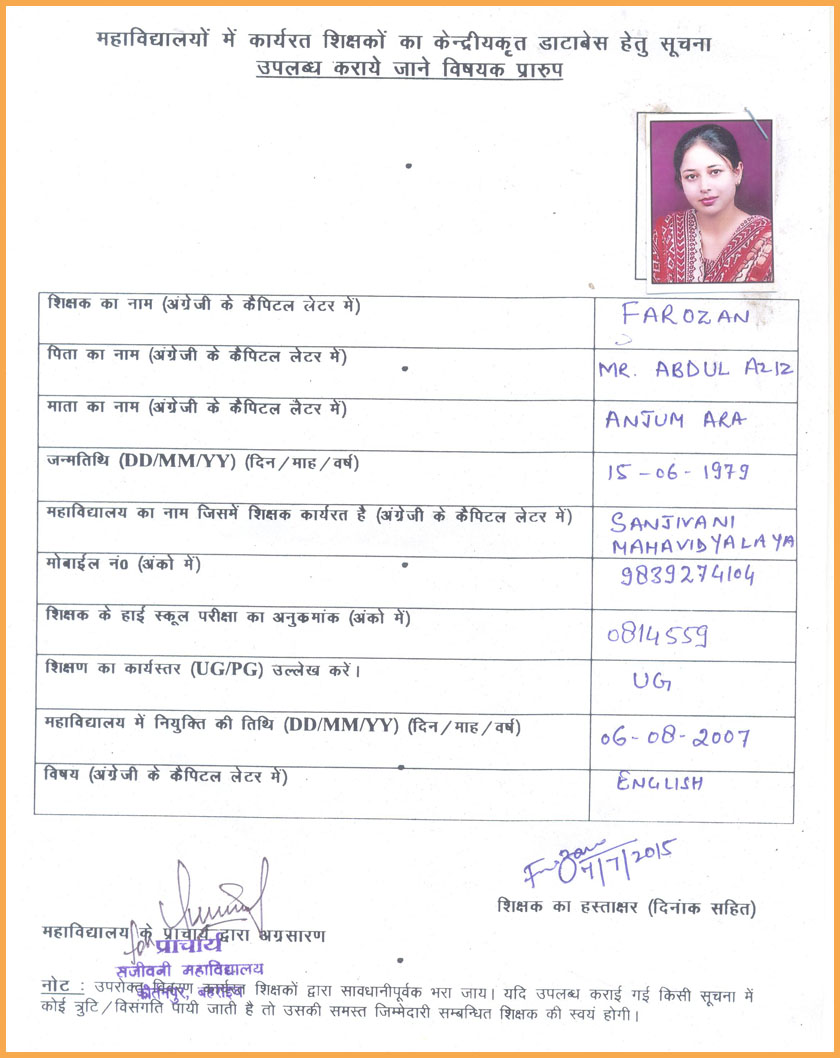 महाविद्यालयों में कार्यरत शिक्षकों का केन्द्रीयकृत डाटाबेस हेतु सूचना
उपलब्ध कराये जाने विषयक प्रारुप
शिक्षक का नाम (अंग्रेजी के कैपिटल लेटर में) FAROZAN
पिता का नाम (अंग्रेजी के कैपिटल लेटर में) MR. ABDUL AZIZ
माता का नाम (अंग्रेजी के कैपिटल लैटर में) ANJUM ARA
जन्मतिथि (DD/MM/YY) (दिन/माह/वर्ष) 15-06-1979
महाविद्यालय का नाम जिसमें शिक्षक कार्यरत है (अंग्रेजी के कैपिटल लेटर में) SANJIVANI
MAHAVIDYALAYA
मोबाईल नं0 (अंको में) 9839274104
शिक्षक के हाई स्कूल परीक्षा का अनुकमांक (अंको में) 0814559
शिक्षण का कार्यस्तर (UG/PG) उल्लेख करें। UG
महाविद्यालय में नियुक्ति की तिथि (DD/MM/YY) (दिन/माह/वर्ष) 06-08-2007
विषय (अंग्रेजी के कैपिटल लेटर में) ENGLISH
7/7/2015
शिक्षक का हस्ताक्षर (दिनांक सहित)
महाविद्यालय के प्राचार्य द्वारा अग्रसारण
for प्राचार्य
संजीवनी महाविद्यालय
नोट : उपरोक्त विवरण कार्यरत शिक्षकों द्वारा सावधानीपूर्वक भरा जाय। यदि उपलब्ध कराई गई किसी सूचना में
कोई त्रुटि/विसंगति पायी जाती है तो उसकी समस्त जिम्मेदारी सम्बन्धित शिक्षक की स्वयं होगी।